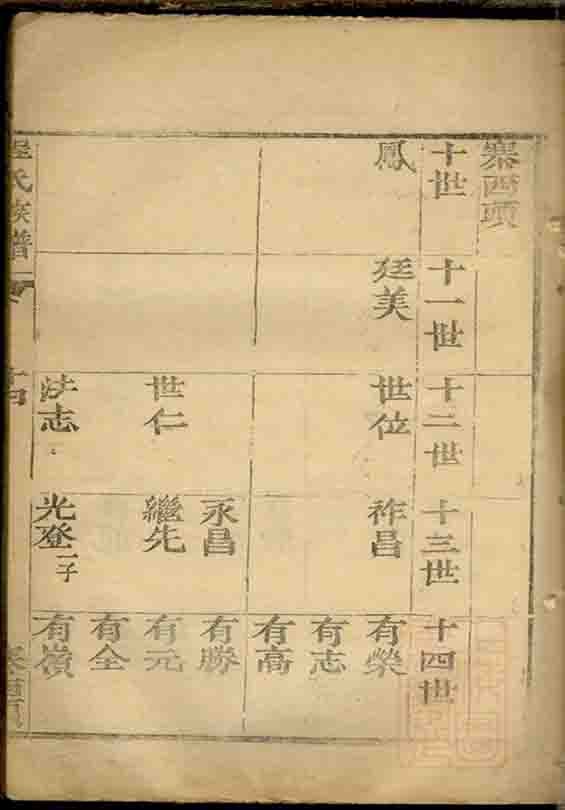 寨西頭
十世
十一世
十二世
十三世
十四世
鳳
廷美
世位
祚昌
有榮
有志
有高
永昌
有勝
世仁
繼先
有元
有全
法志
光登一子
有嶺
氏族譜
十四